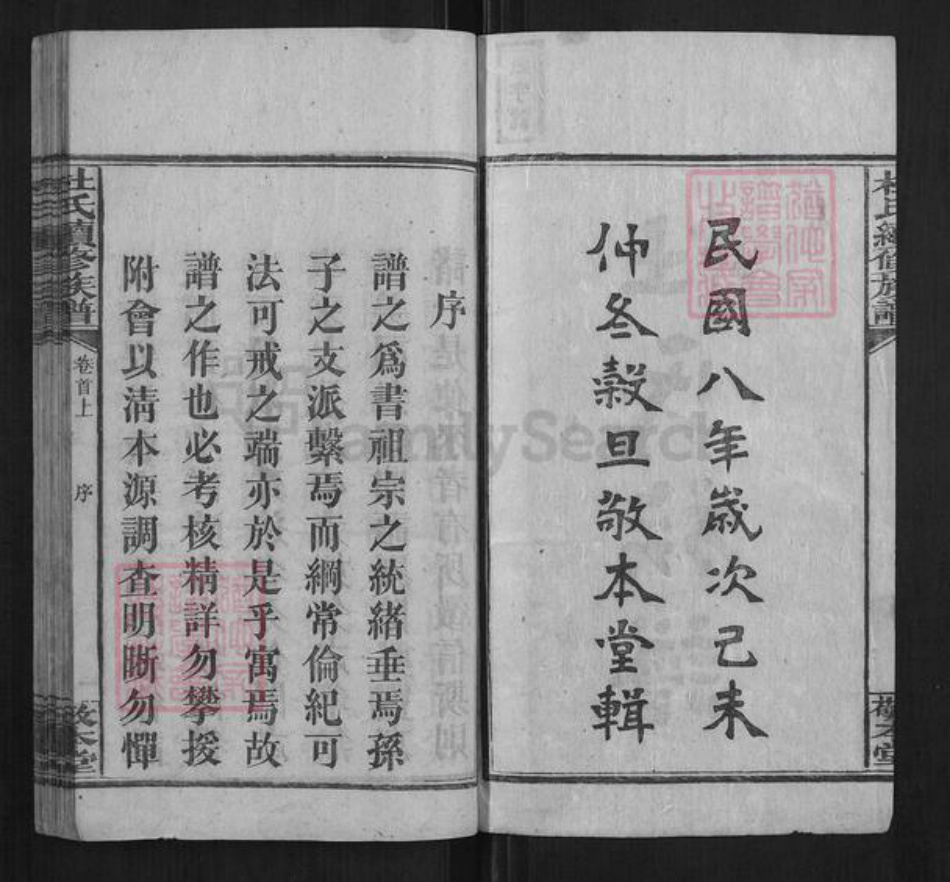 杜氏續修族譜
敬本堂
民國八年歲次己未
仲冬穀旦敬本堂輯
序
譜之爲書祖宗之統緒垂焉孫
子之支派繫焉而綱常倫紀可
法可戒之端亦於是乎寓焉故
譜之作也必考核精詳勿攀援
附會以淸本源調查明晰勿憚
杜氏續修族譜
卷首上
序
敬本堂
FamilySearch